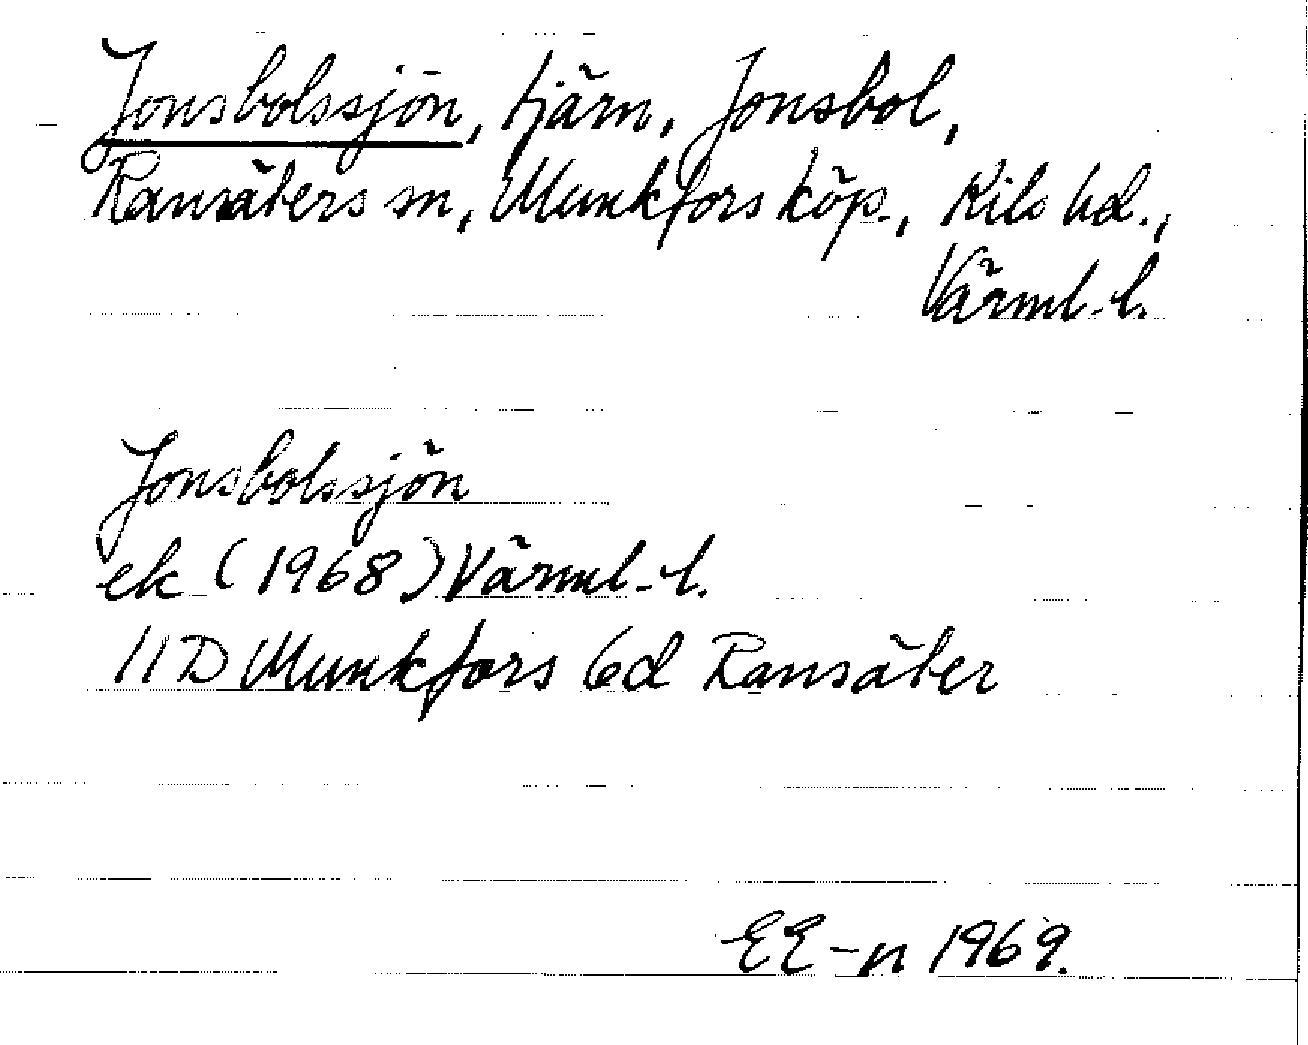 Jonsbolssjön, tjärn, Jonsbol,
Ransäters sn, Munkfors köp., Kils hd.,
Värml. l.
Jonsbolssjön
ek (1968) Värml. l.
11D Munkfors 6d Ransäter
EE-n 1969.